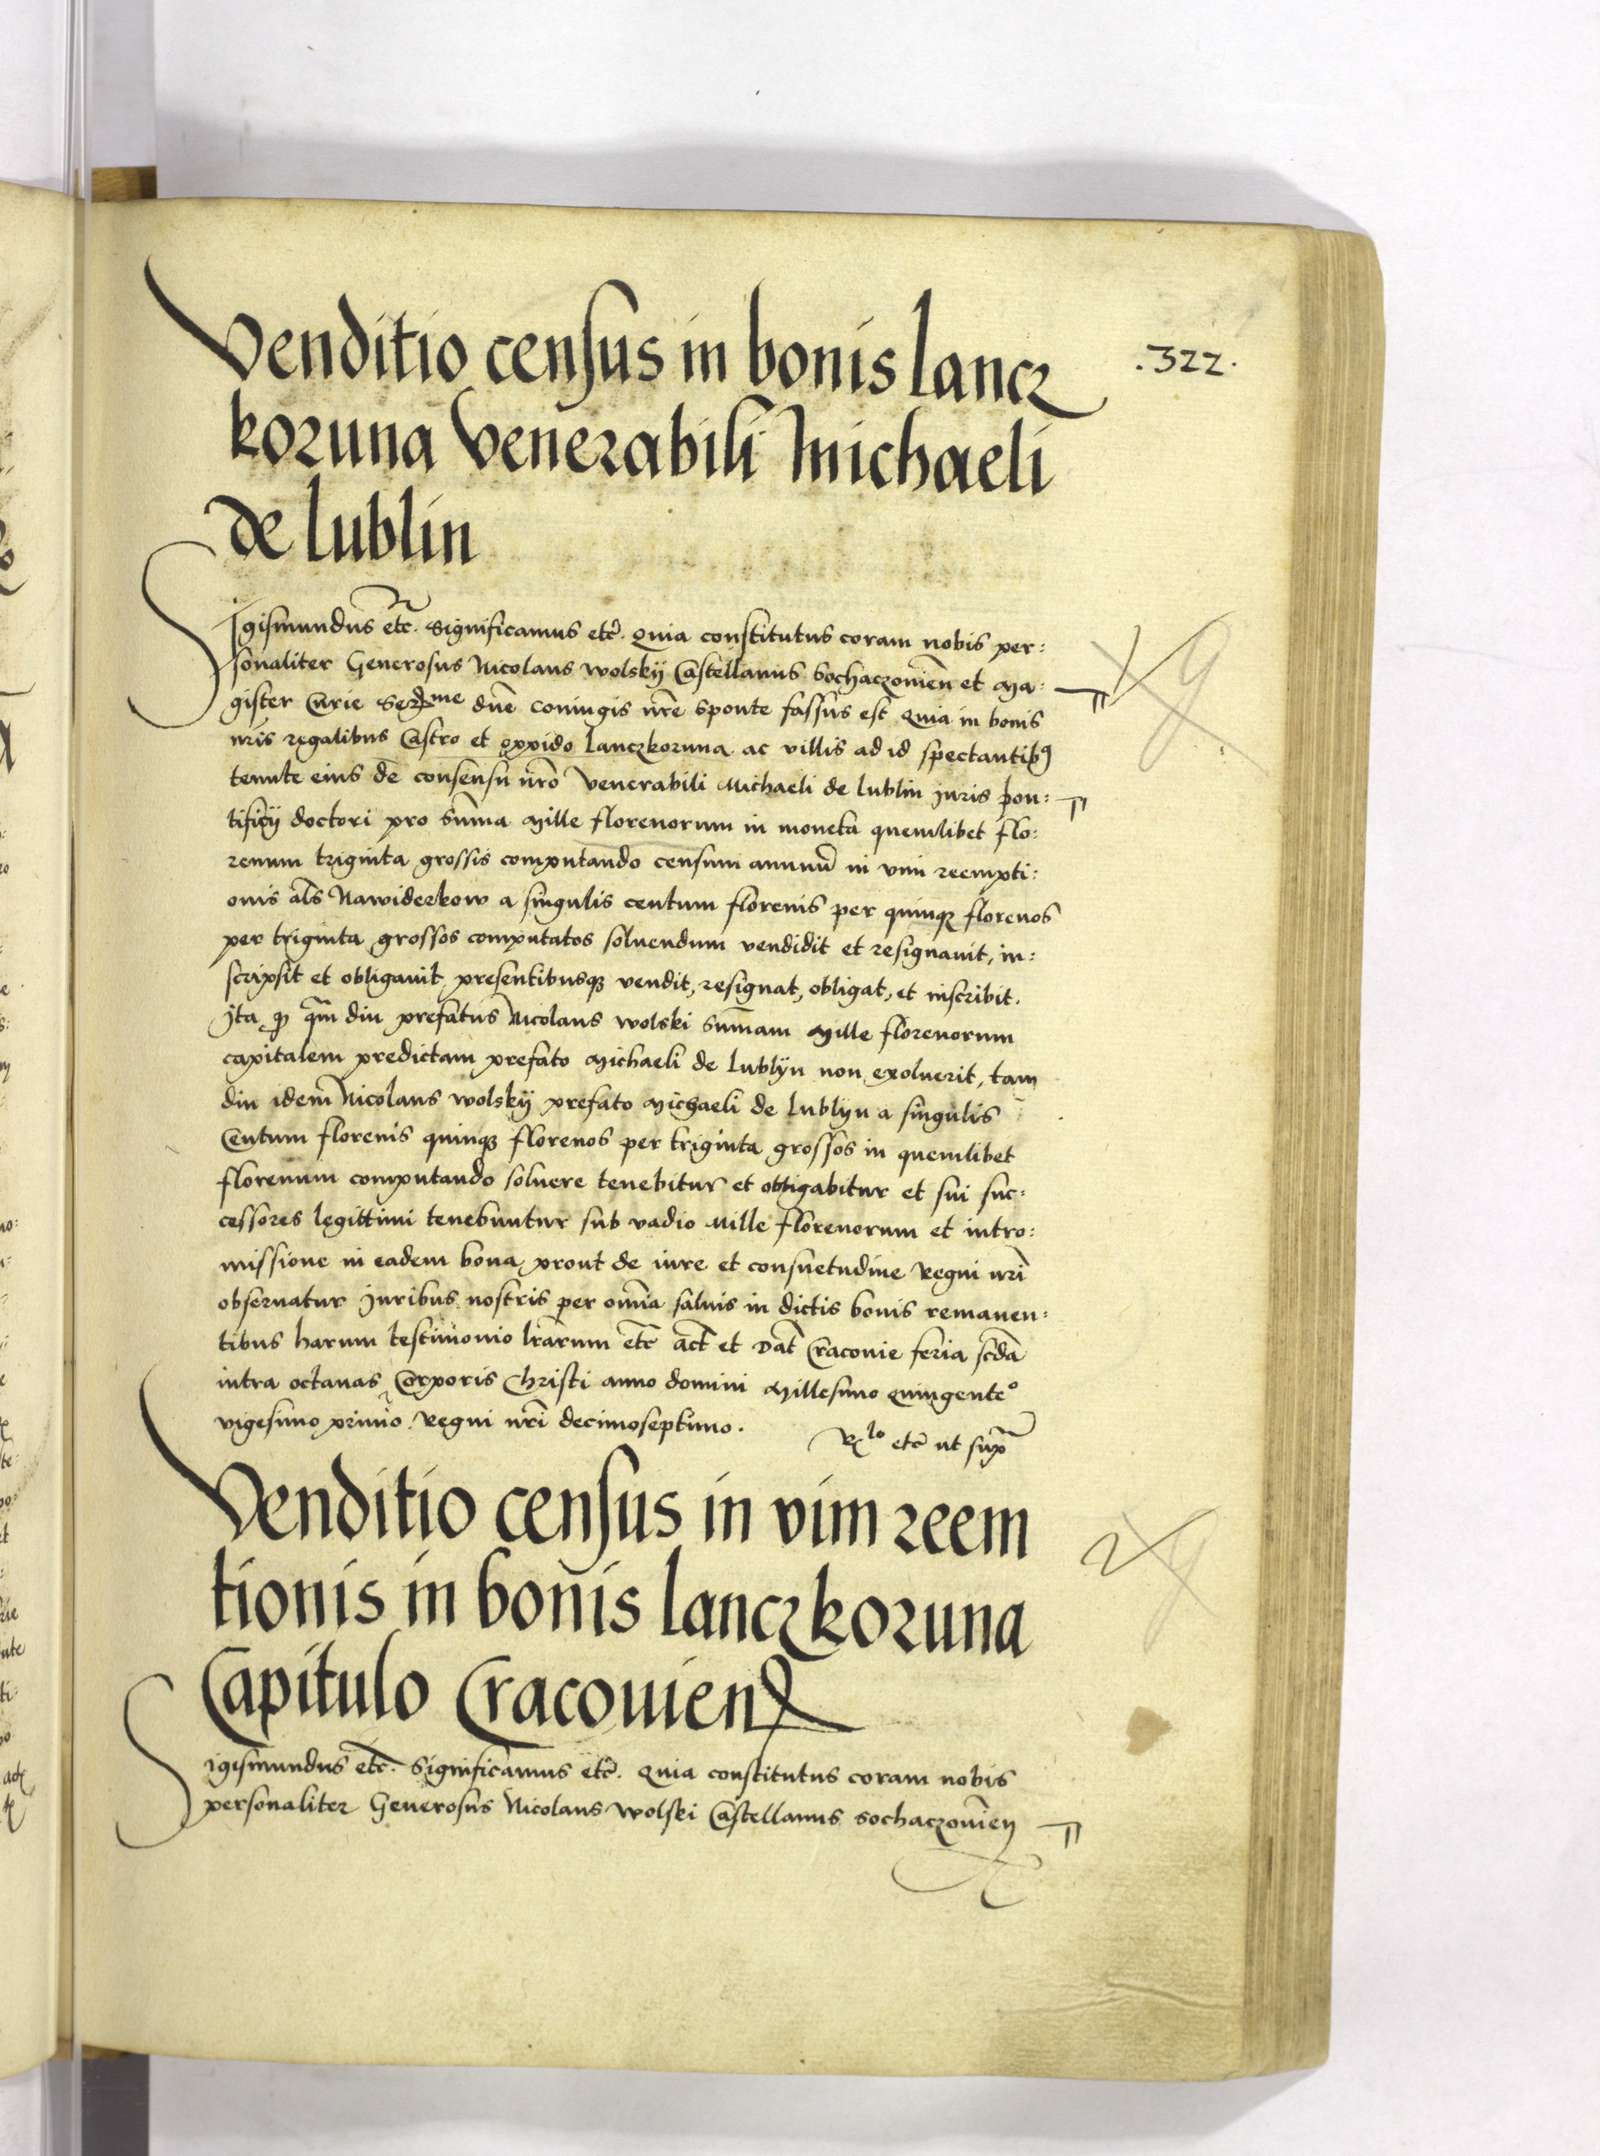 .322.
Venditio census in bonis lancz
koruna Venerabili Michaeli
de lublin
Sigismundus etc. Significamus etc. Quia constitutus coram nobis per:
sonaliter Generosus Nicolaus wolskij Castellanus Sochaczouien et Ma:
gister Curie Serme dne coniugis nre sponte fassus est Quia in bonis
nris regalibus Castro et oppido lanczkoruna ac villis ad id spectantibus
tenute eius de consensu nro Venerabili Michaeli de lublin Juris pon:
tificij doctori pro summa Mille florenorum in moneta quemlibet flo:
renum triginta grossis computando censum annuum in vim reempti:
onis als Nawiderkow a singulis centum florenis per quinque florenos
per triginta grossos computatos soluendum vendidit et resignauit, in:
scripsit et obligauit presentibusque vendit, resignat, obligat, et inscribit.
Ita quod quam diu prefatus Nicolaus wolski summam Mille florenorum
capitalem predictam prefato Michaeli de lublyn non exoluerit, tam
diu idem Nicolaus wolskij prefato Michaeli de lublyn a singulis
Centum florenis quinque florenos per triginta grossos in quemlibet
florenum computando soluere tenebitur et obligabitur et sui suc:
cessores legittimi tenebuntur sub vadio Mille florenorum et intro:
missione in eadem bona prout de iure et consuetudine Regni nri
obseruatur Juribus nostris per omnia saluis in dictis bonis remanen:
tibus harum testimonio lrarum etc act et Dat Cracouie feria scda
intra octauas Corporis Christi anno domini Millesimo quingenteo
vigesimo primo Regni nri decimoseptimo.
Rlo etc ut supra
Venditio census in vim reem
tionis in bonis lanczkoruna
Capitulo Cracouien
Sigismundus etc. Significamus etc. Quia constitutus coram nobis
personaliter Generosus Nicolaus wolski Castellanus Sochaczouien